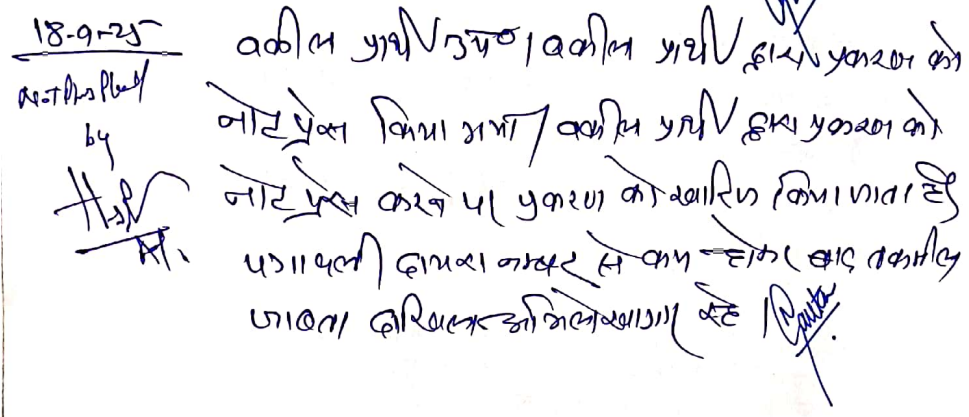 18-9-25
वकील प्रार्थी उप०। वकील प्रार्थी द्वारा प्रकरण को
Not Press
by
नोट प्रेस किया गया। वकील प्रार्थी द्वारा प्रकरण को
नोट प्रेस करने पर प्रकरण को खारिज किया जाता है।
पत्रावली दायरा नम्बर से कम होकर बाद तकमील
जाब्ता दाखिल अभिलेखागार रहे।